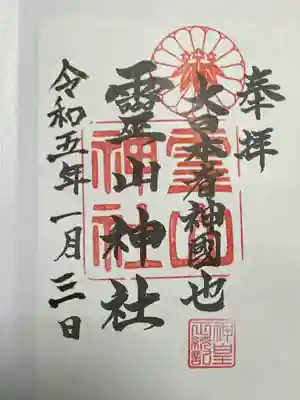 奉拝
大日本者神國也
靈山神社
令和五年一月三日
靈山
神社
神皇
正統記